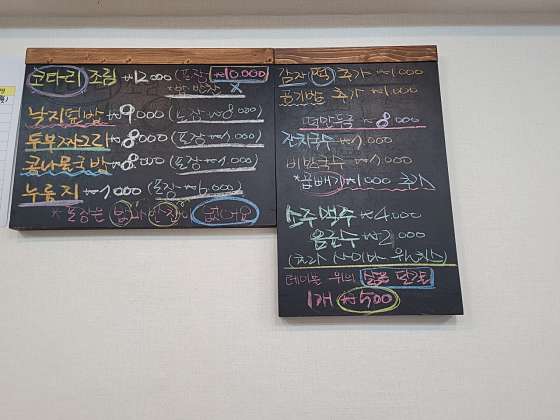 코다리 조림 ₩12.000 (포장 ₩10.000)
*밥 반찬 X
낙지덮밥 ₩9000 (포장 ₩8000)
두부짜그리 ₩8000 (포장 ₩7.000)
콩나물국밥 ₩8000 (포장 ₩7.000)
누룽지 ₩7.000 (포장 ₩6.000)
*포장은 밥과 반찬이 없어요
감자 떡 추가 ₩1.000
공기밥 추가 ₩1.000
떡만둣국 ₩8000
잔치국수 ₩7.000
비빔국수 ₩7.000
*곱빼기 ₩1.000 추가
소주 맥주 ₩4.000
음료수 ₩2.000
(콜라 사이다 웰치스)
테이블 위의 삶은 달걀
1개 ₩500